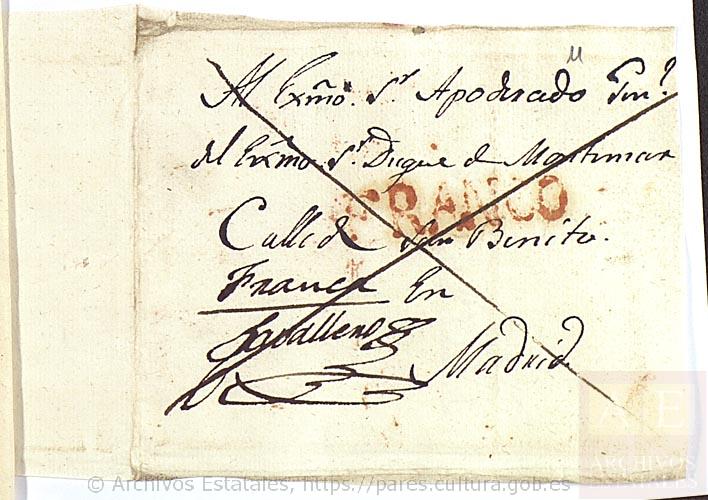 M
Al Exmo. Sr. Apoderado Gen.l
del Exmo Sr. Duque de Montemar
Calle de San Benito.
FRANCO
Franca En
Caballero
Madrid.
AE
ARCHIVOS
ESTATALES
© Archivos Estatales, https://pares.cultura.gob.es